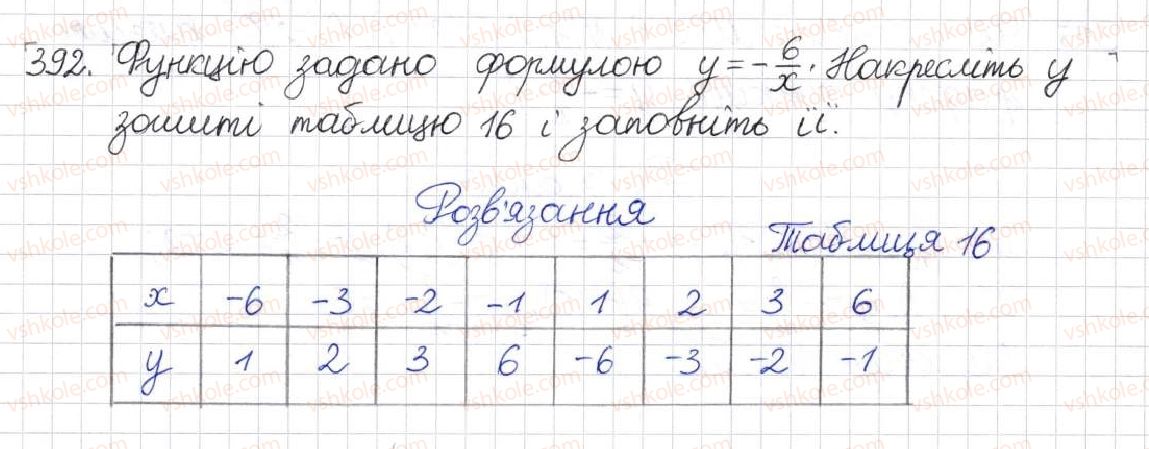 392. Функцію задано формулою y = -6/x. Накресліть у
зошиті таблицю 16 і заповніть її.
Розв'язання
Таблиця 16
x -6 -3 -2 -1 1 2 3 6
y 1 2 3 6 -6 -3 -2 -1
vshkole.com